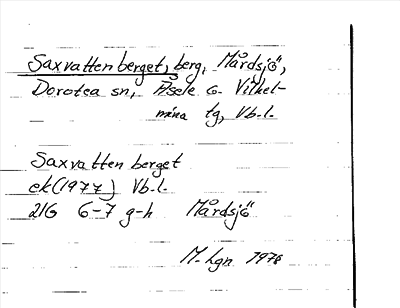 Saxvattenberget, berg, Mårdsjö,
Dorotea sn, Åsele o. Vilhel-
mina tg, Vb. l.
Saxvattenberget
ek (1977) Vb. l.
21G 6-7 g-h Mårdsjö
M. Lgn 1978